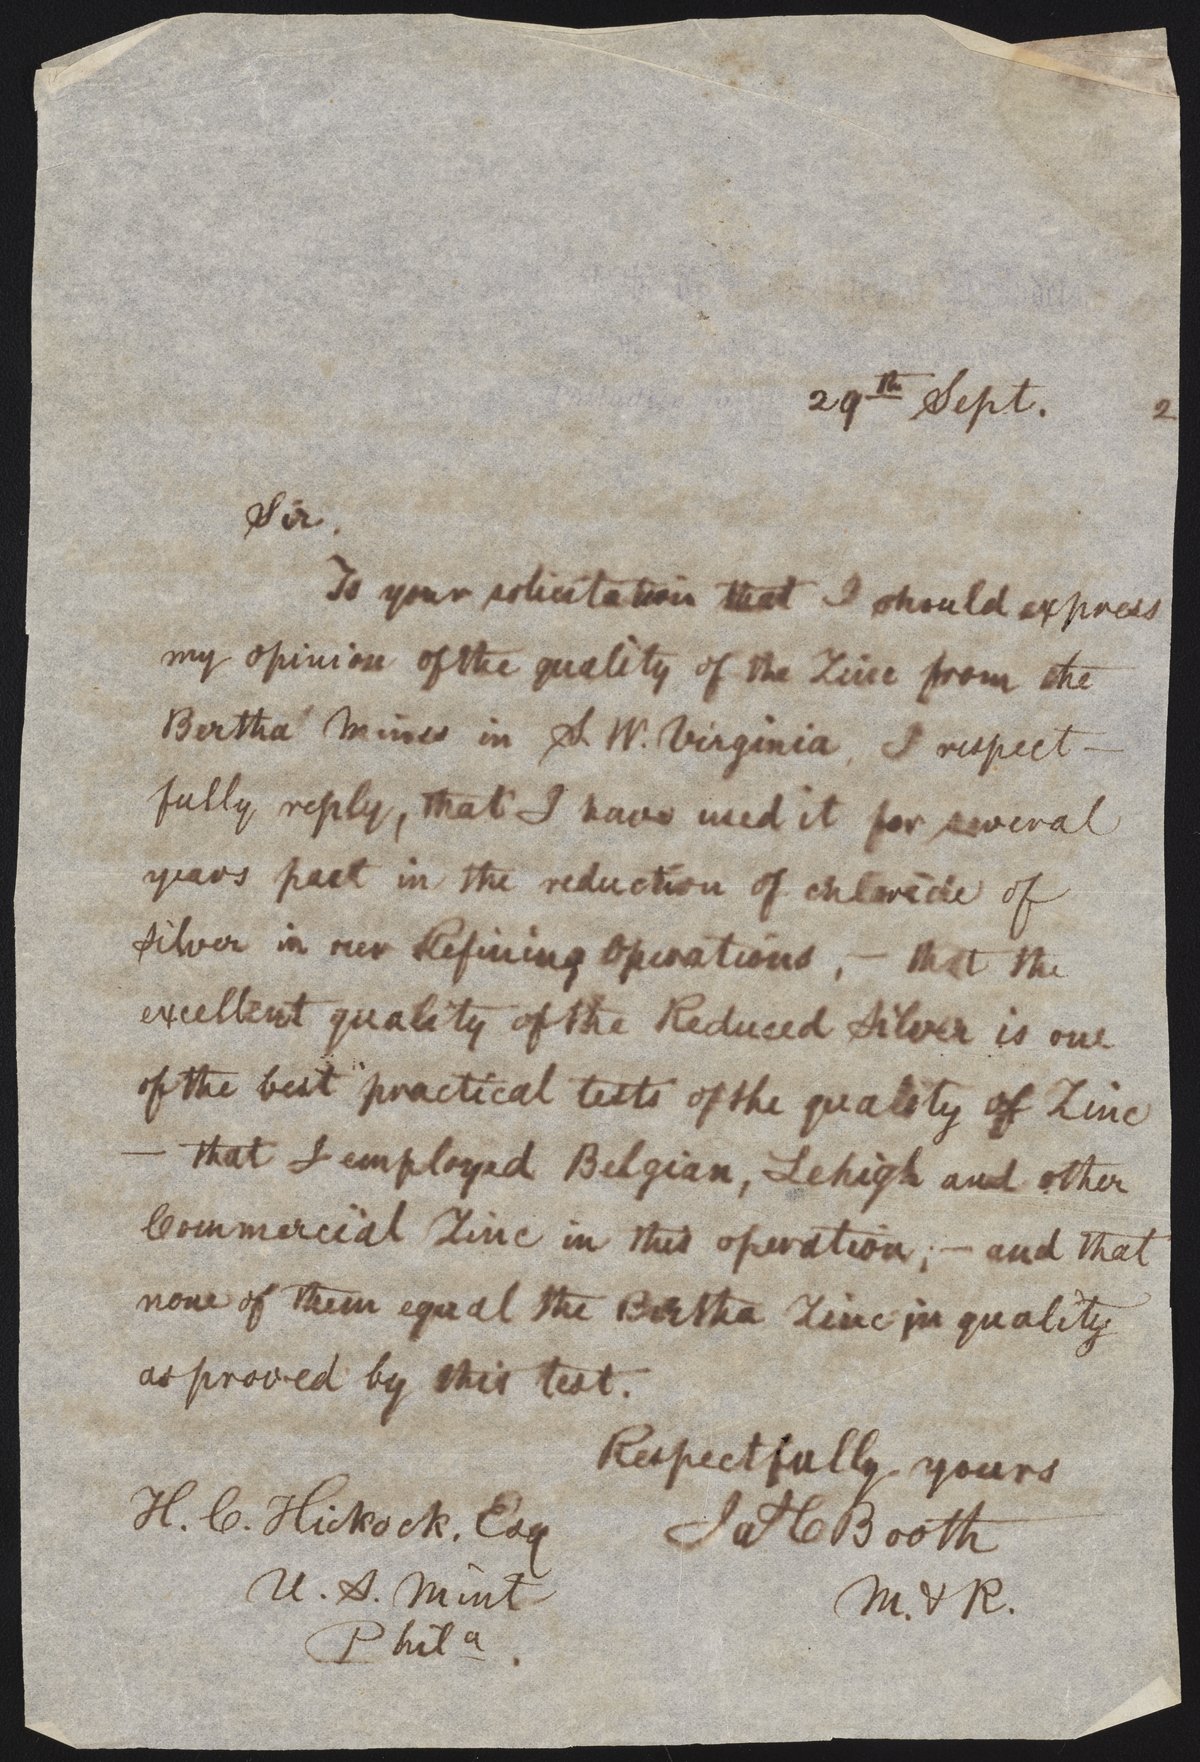 29th Sept. 2
Sir.
To your solicitation that I should express
my opinion of the quality of the Zinc from the
Bertha Mines in S. W. Virginia, I respect-
fully reply, that I have used it for several
years past in the reduction of chloride of
Silver in our Refining Operations, - that the
excellent quality of the Reduced Silver is one
of the best practical tests of the quality of Zinc
- that I employed Belgian, Lehigh and other
Commercial Zinc in this operation; - and that
none of them equal the Bertha Zinc in quality
as proved by this test.
Respectfully yours
H. C. Hickock, Esq
Jas C Booth
U. S. Mint
M. & R.
Phila.